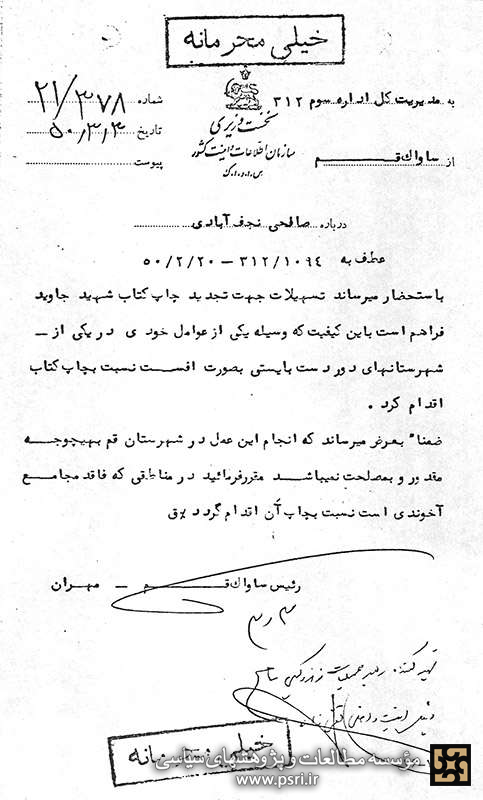 خیلی محرمانه
به مدیریت کل اداره سوم ۳۱۲
شماره ۲۱/۳۷۸
نخست وزیری
تاریخ ۵۰٫۳٫۳
سازمان اطلاعات و امنیت کشور
از ساواک قم
پیوست
س.ا.و.ا.ک
درباره صالحی نجف آبادی
عطف به ۳۱۲/۱۰۹۴ – ۵۰/۲/۲۰
باستحضار میرساند تسهیلات جهت تجدید چاپ کتاب شهید جاوید
فراهم است باین کیفیت که وسیله یکی از عوامل خودی در یکی از –
شهرستانهای دوردست بایستی بصورت افست نسبت بچاپ کتاب
اقدام کرد .
ضمناً بعرض میرساند که انجام این عمل در شهرستان قم بهیچوجه
مقدور و بمصلحت نمیباشد مقررفرمائید در مناطقی که فاقد مجامع
آخوندی است نسبت بچاپ آن اقدام گردد برق
رئیس ساواک قم – مهران
۳٫۳
تهیه کننده: رهبر عملیات
خیلی محرمانه
مؤسسه مطالعات و پژوهشهای سیاسی
www.psri.ir